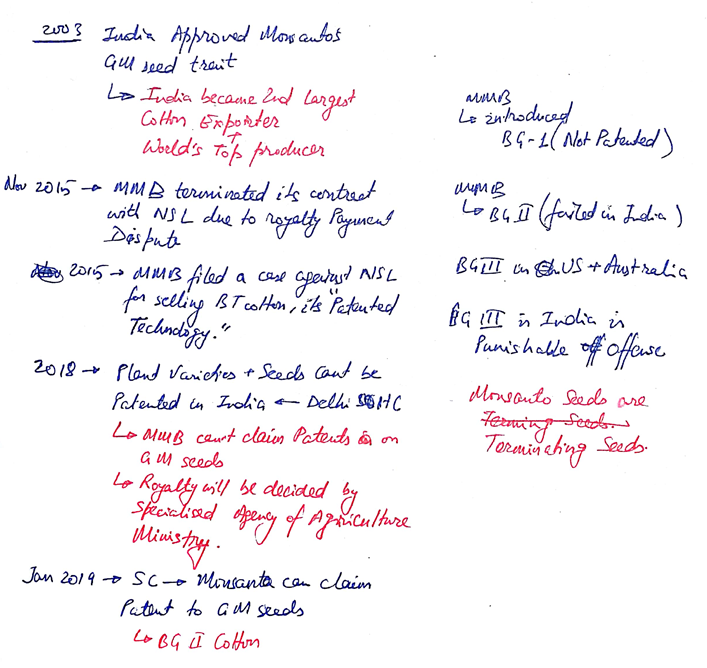 2003 India Approved Monsanto's
GM seed trait
↳ India became 2nd largest
Cotton Exporter
+
World's Top producer
Nov 2015 → MMB terminated its contract
with NSL due to royalty Payment
Dispute
2015 → MMB filed a case against NSL
for selling BT cotton, its "Patented
Technology."
2018 → Plant Varieties + Seeds cant be
Patented in India ← Delhi HC
↳ MMB can't claim Patents on
GM seeds
↳ Royalty will be decided by
Specialised Agency of Agriculture
Ministry.
Jan 2019 → SC → Monsanta can claim
Patent to GM seeds
↳ BG II Cotton
MMB
↳ introduced
BG-1 (Not Patented)
MMB
↳ BG II (failed in India)
BG III in US + Australia
BG III in India is
Punishable Offense
Monsanto Seeds are
Terming Seeds.
Terminating Seeds.